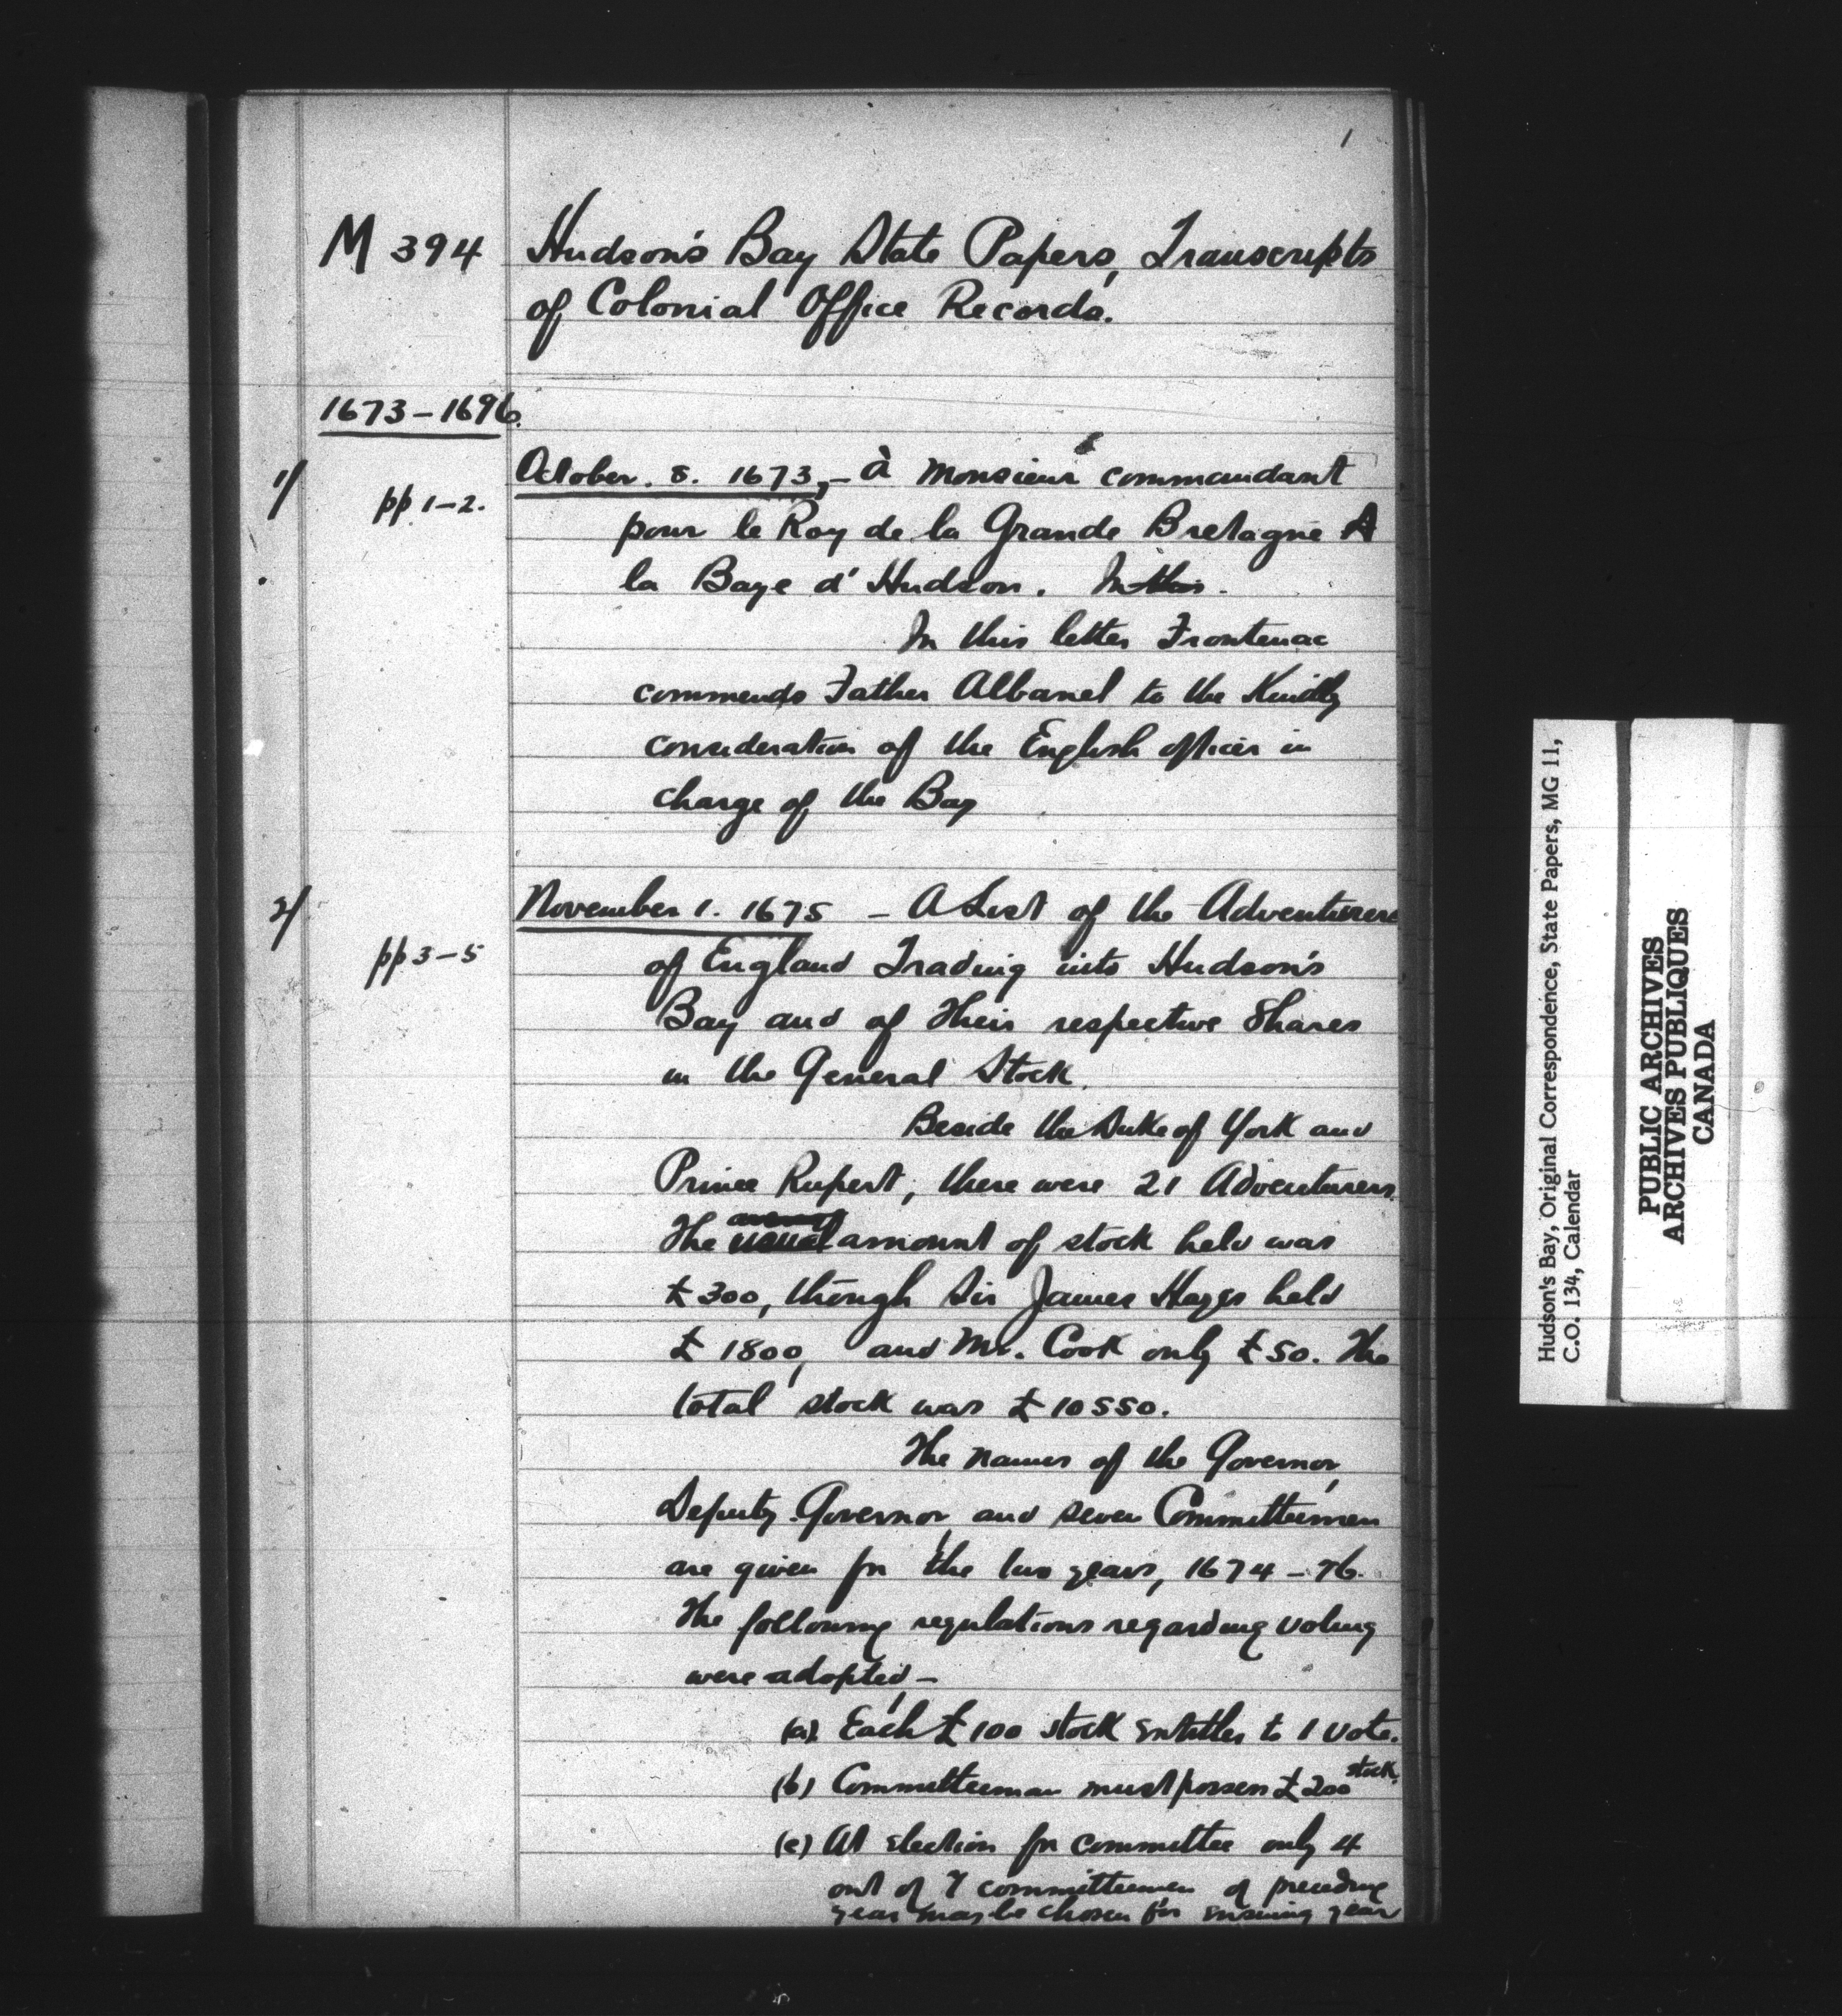 1
M 394 Hudson's Bay State Papers, Transcripts
of Colonial Office Records.
1673-1696.
1/ pp 1-2. October. 8. 1673, - à Monsieur commandant
pour le Roy de la Grande Bretagne A
la Baye d'Hudson. In this.
In this letter Frontenac
commends Father Albanel to the Kindly
consideration of the English officer in
charge of the Bay
2/ pp 3-5 November 1. 1675 - A List of the Adventurers
of England Trading into Hudson's
Bay and of Their respective Shares
in the General Stock.
Beside the Duke of York and
Prince Rupert, there were 21 Adventurers.
The usual amount of stock held was
£300, though Sir James Hayes held
£1800, and Mr. Cook only £50. The
total stock was £10550.
The names of the Governor,
Deputy Governor, and seven Committeemen
are given for the two years, 1674-76.
The following regulations regarding voting
were adopted -
(a) Each £100 stock entitles to 1 vote.
(b) Committeeman must possess £200 stock.
(c) At election for committee only 4
out of 7 committeemen of preceding
year may be chosen for ensuing year
Hudson's Bay, Original Correspondence, State Papers, MG 11,
C.O. 134, Calendar
PUBLIC ARCHIVES
ARCHIVES PUBLIQUES
CANADA